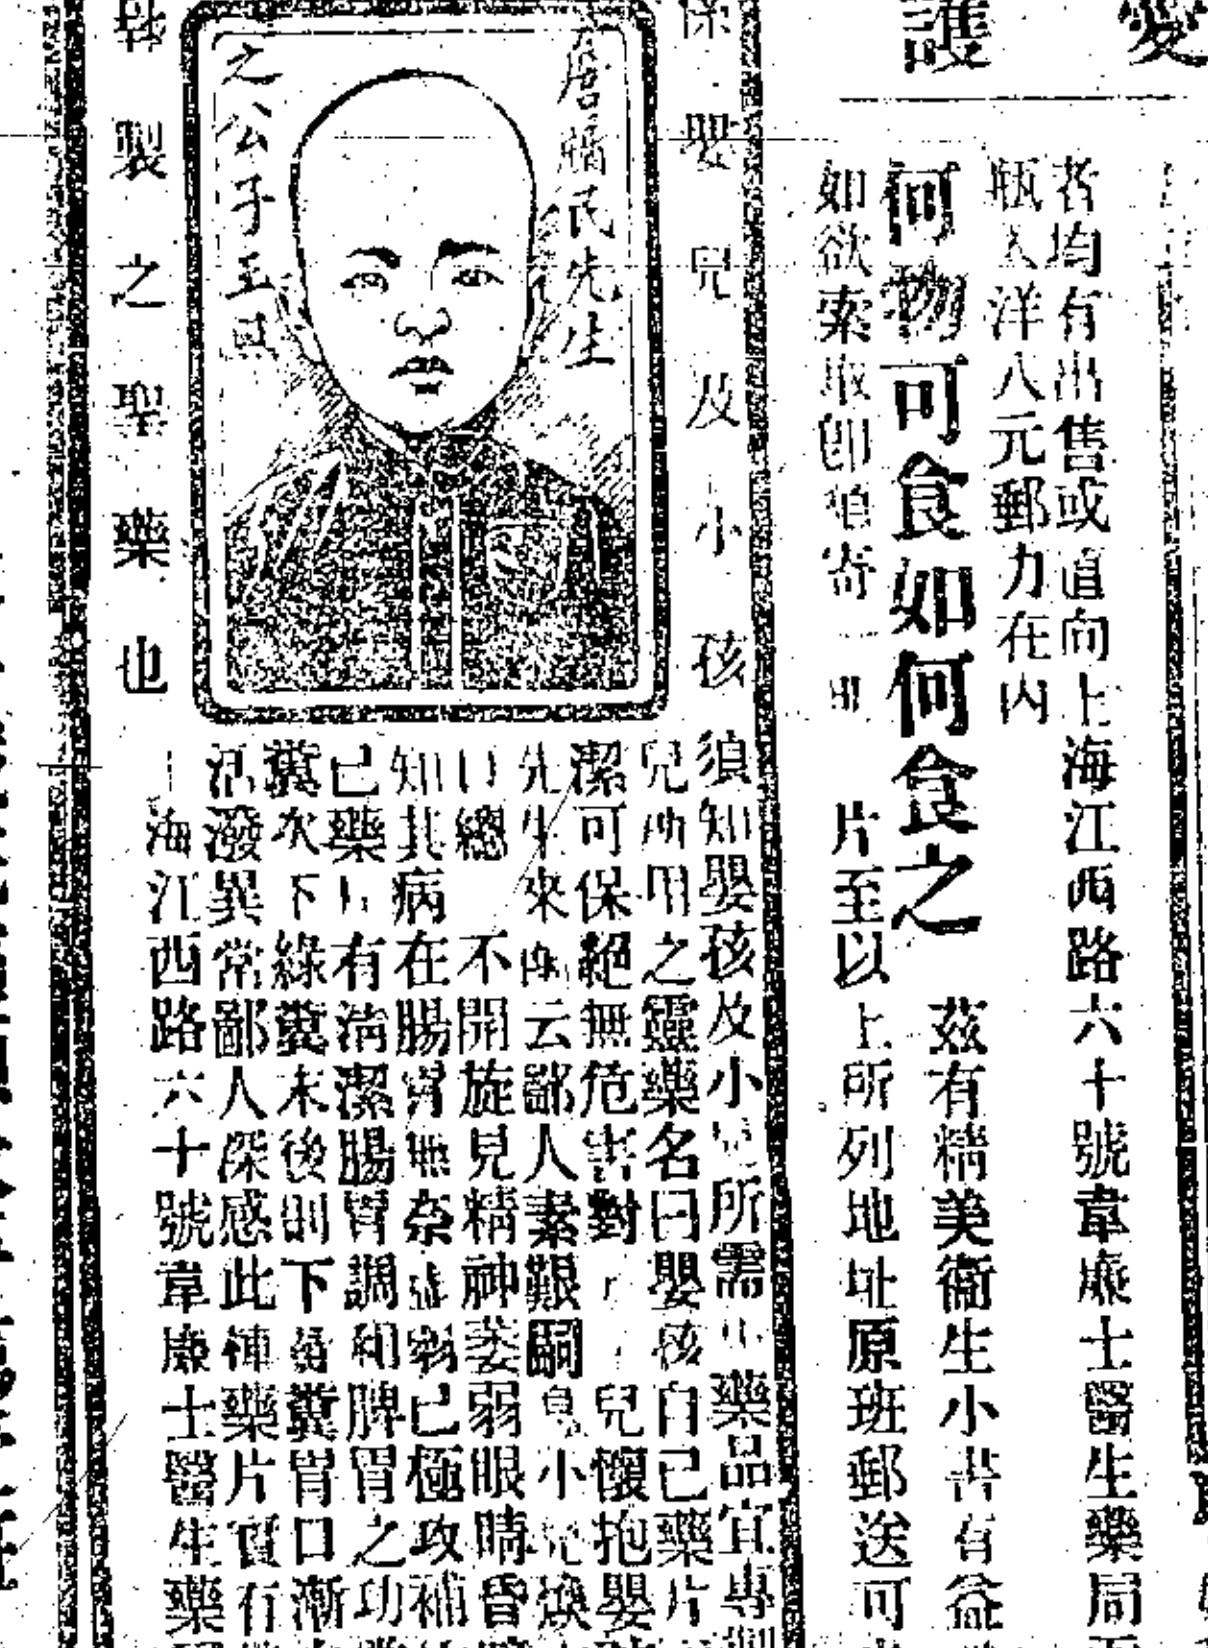 愛
護
者均有出售或直向上海江西路六十號韋廉士醫生藥局
瓶大洋八元郵力在內
何物可食如何食之
茲有精美衞生小書有益
如欲索取卽寄
片至以上所列地址原班郵送可
嬰兒及小孩
唐 民先生
之公子玉
製之聖藥也
須知嬰孩及小 所需 藥品宜專
兒所用之靈藥名曰嬰孩自己藥片
潔可保絕無危害對 兒懷抱嬰
先生來 云鄙人素艱嗣 小
口總 不開旋見精神委弱眼睛昏
知其病在腸胃無奈虛弱已極攻補
已藥片有淸潔腸胃調和脾胃之功
糞次下綠糞末後則下 糞胃口漸
活潑異常鄙人深感此種藥片實有
海江西路六十號韋廉士醫生藥